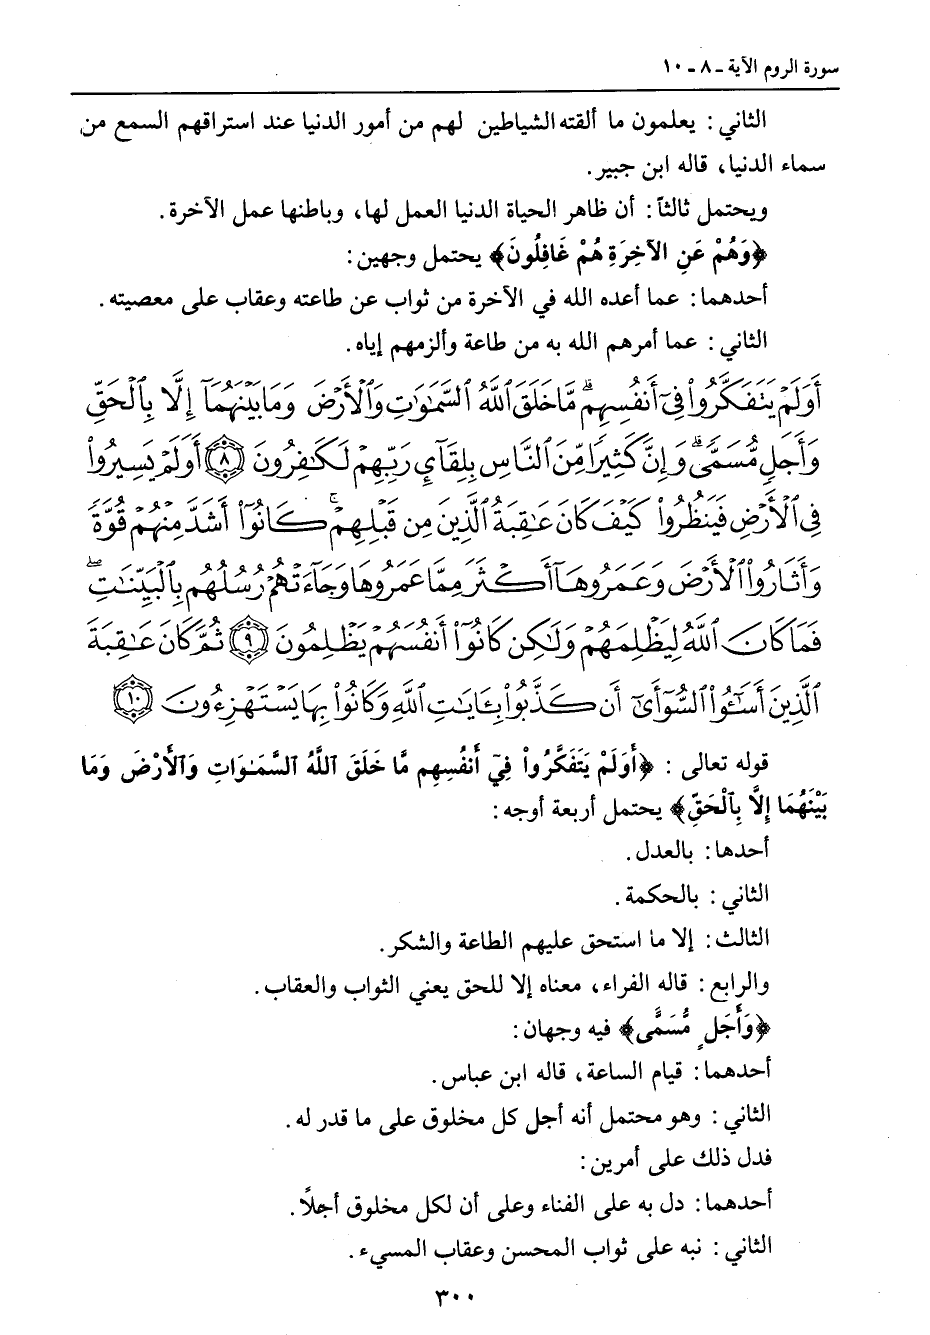 سورة الروم الآية ـ ٨ ـ ١٠
الثاني : يعلمون ما ألقته الشياطين لهم من أمور الدنيا عند استراقهم السمع من
سماء الدنيا، قاله ابن جبير.
ويحتمل ثالثاً : أن ظاهر الحياة الدنيا العمل لها، وباطنها عمل الآخرة.
﴿وَهُمْ عَنِ الآخِرَةِ هُمْ غَافِلُونَ﴾ يحتمل وجهين :
أحدهما : عما أعده الله في الآخرة من ثواب عن طاعته وعقاب على معصيته.
الثاني : عما أمرهم الله به من طاعة وألزمهم إياه.
أَوَلَمْ يَتَفَكَّرُوا۟ فِىٓ أَنفُسِهِم ۗ مَّا خَلَقَ ٱللَّهُ ٱلسَّمَـٰوَٰتِ وَٱلْأَرْضَ وَمَا بَيْنَهُمَآ إِلَّا بِٱلْحَقِّ
وَأَجَلٍ مُّسَمًّى ۗ وَإِنَّ كَثِيرًا مِّنَ ٱلنَّاسِ بِلِقَآئِ رَبِّهِمْ لَكَـٰفِرُونَ ٨ أَوَلَمْ يَسِيرُوا۟
فِى ٱلْأَرْضِ فَيَنظُرُوا۟ كَيْفَ كَانَ عَـٰقِبَةُ ٱلَّذِينَ مِن قَبْلِهِمْ ۚ كَانُوٓا۟ أَشَدَّ مِنْهُمْ قُوَّةً
وَأَثَارُوا۟ ٱلْأَرْضَ وَعَمَرُوهَآ أَكْثَرَ مِمَّا عَمَرُوهَا وَجَآءَتْهُمْ رُسُلُهُم بِٱلْبَيِّنَـٰتِ ۖ
فَمَا كَانَ ٱللَّهُ لِيَظْلِمَهُمْ وَلَـٰكِن كَانُوٓا۟ أَنفُسَهُمْ يَظْلِمُونَ ٩ ثُمَّ كَانَ عَـٰقِبَةَ
ٱلَّذِينَ أَسَـٰٓـُٔوا۟ ٱلسُّوٓأَىٰٓ أَن كَذَّبُوا۟ بِـَٔايَـٰتِ ٱللَّهِ وَكَانُوا۟ بِهَا يَسْتَهْزِءُونَ ١٠
قوله تعالى : ﴿أَوَلَمْ يَتَفَكَّرُواْ فِيٓ أَنفُسِهِم مَّا خَلَقَ ٱللَّهُ السَّمَـٰوَاتِ وَٱلأَرْضَ وَمَا
بَيْنَهُمَا إِلاَّ بِٱلْحَقِّ﴾ يحتمل أربعة أوجه :
أحدها : بالعدل.
الثاني : بالحكمة.
الثالث : إلا ما استحق عليهم الطاعة والشكر.
والرابع : قاله الفراء، معناه إلا للحق يعني الثواب والعقاب.
﴿وَأَجَلٍ مُّسَمًّى﴾ فيه وجهان :
أحدهما : قيام الساعة، قاله ابن عباس.
الثاني : وهو محتمل أنه أجل كل مخلوق على ما قدر له.
فدل ذلك على أمرين :
أحدهما : دل به على الفناء وعلى أن لكل مخلوق أجلاً.
الثاني : نبه على ثواب المحسن وعقاب المسيء.
٣٠٠